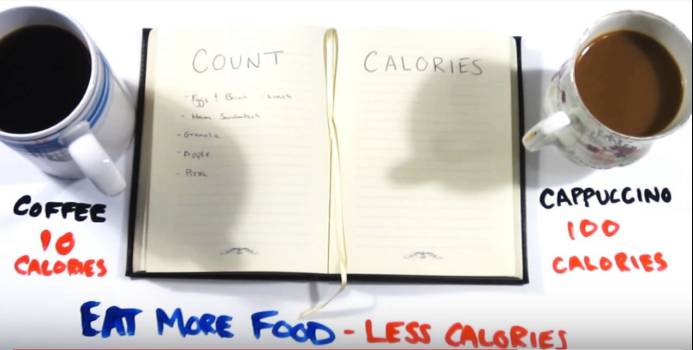 COUNT CALORIES
- Eggs + Bacon
- Ham Sandwich
- Granola
- Apple
- Pizza
COFFEE
10
CALORIES
CAPPUCCINO
100
CALORIES
EAT MORE FOOD - LESS CALORIES